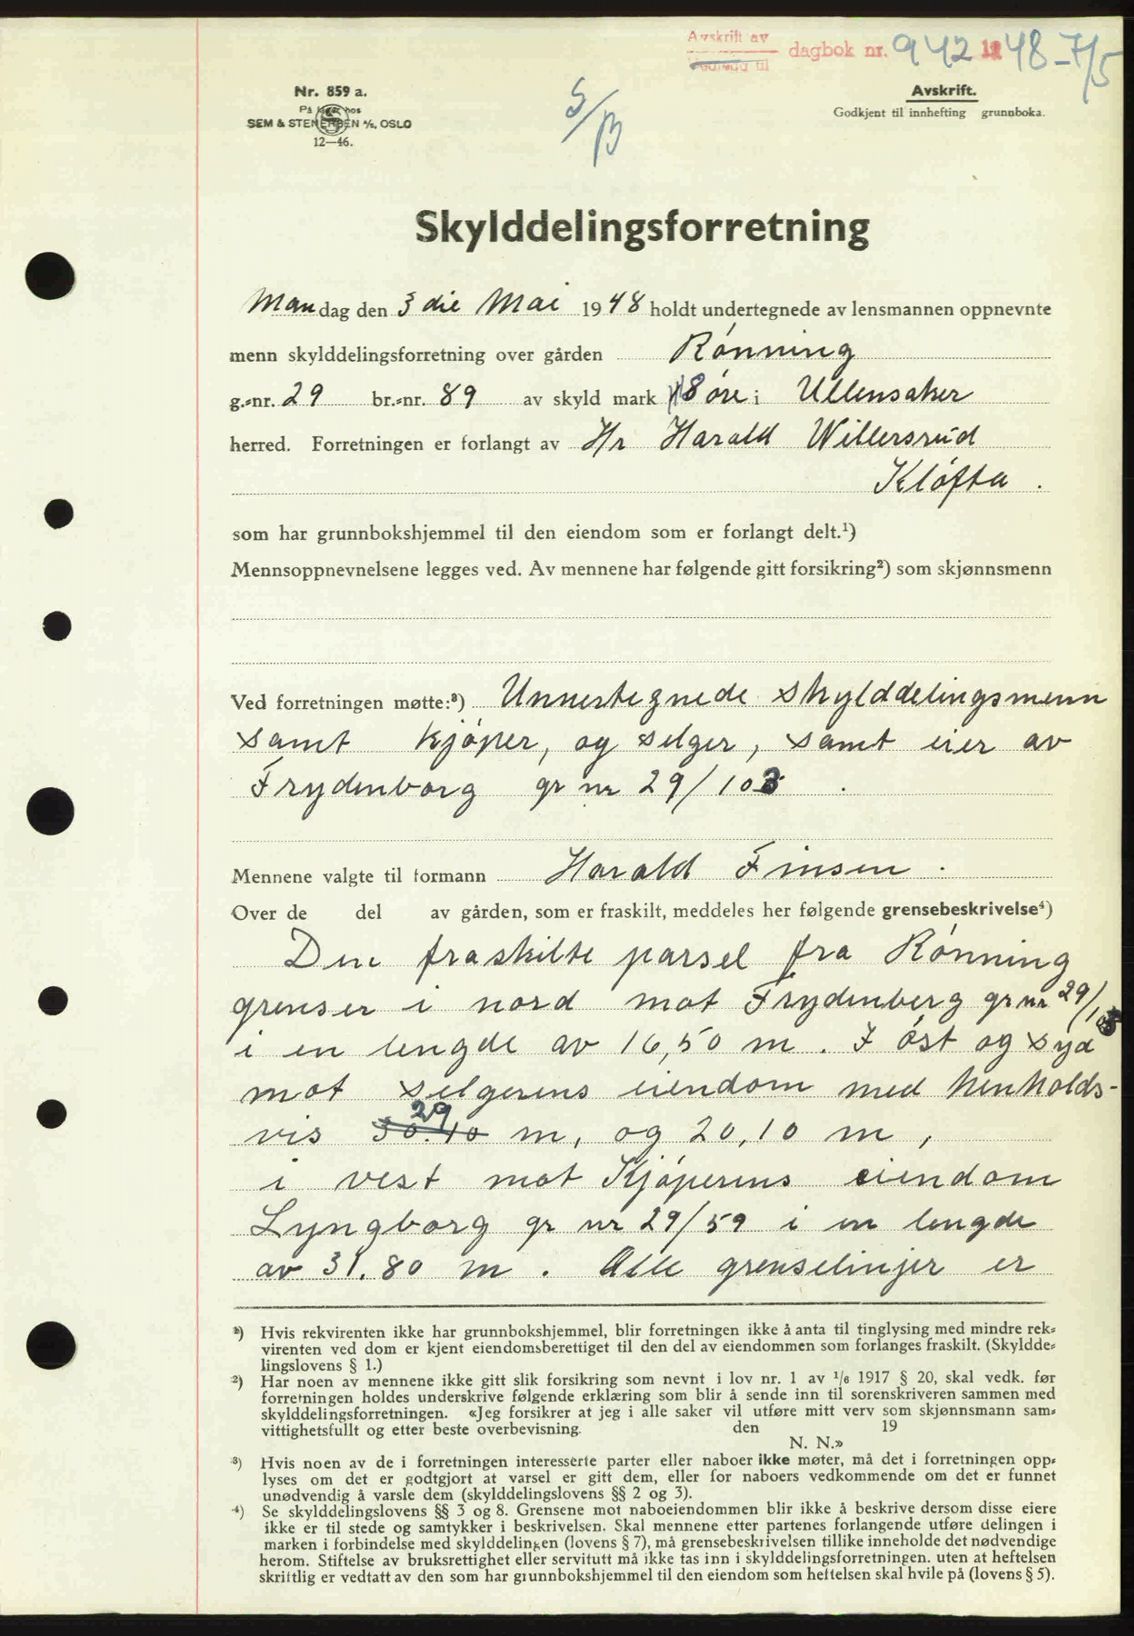 Avskrift av
dagbok nr. 942 1948-7/5
Nr. 859 a.
På lager hos
SEM & STENERSEN A/S, OSLO
12—46.
S/B
Avskrift.
Godkjent til innhefting grunnboka.
Skylddelingsforretning
Mandag den 3 die Mai 1948 holdt undertegnede av lensmannen oppnevnte
menn skylddelingsforretning over gården Rónning
g.-nr. 29 br.-nr. 89 av skyld mark 18 øre i Ullensaker
herred. Forretningen er forlangt av Hr Harald Willersrud
Kløfta .
som har grunnbokshjemmel til den eiendom som er forlangt delt.¹)
Mennsoppnevnelsene legges ved. Av mennene har følgende gitt forsikring²) som skjønnsmenn
Ved forretningen møtte:³) Unnertegnede skylddelingsmenn
samt kjóper, og selger, samt eier av
Frydenborg gr nr 29/103 .
Mennene valgte til formann Harald Finsen .
Over de del av gården, som er fraskilt, meddeles her følgende grensebeskrivelse⁴)
Den fraskilte parsel fra Rónning
grenser i nord mot Frydenberg gr nr 29/103
i en lengde av 16,50 m. I óst og syd
mot selgerens eiendom med henholds-
vis 30.10 29 m, og 20,10 m,
i vest mot Kjóperens eiendom
Lyngborg gr nr 29/59 i en lengde
av 31.80 m . Alle grenselinjer er
¹) Hvis rekvirenten ikke har grunnbokshjemmel, blir forretningen ikke å anta til tinglysing med mindre rek-
virenten ved dom er kjent eiendomsberettiget til den del av eiendommen som forlanges fraskilt. (Skyldde-
lingslovens § 1.)
²) Har noen av mennene ikke gitt slik forsikring som nevnt i lov nr. 1 av 1/6 1917 § 20, skal vedk. før
forretningen holdes underskrive følgende erklæring som blir å sende inn til sorenskriveren sammen med
skylddelingsforretningen. «Jeg forsikrer at jeg i alle saker vil utføre mitt verv som skjønnsmann sam-
vittighetsfullt og etter beste overbevisning. den 19
N. N.»
³) Hvis noen av de i forretningen interesserte parter eller naboer ikke møter, må det i forretningen opp-
lyses om det er godtgjort at varsel er gitt dem, eller for naboers vedkommende om det er funnet
unødvendig å varsle dem (skylddelingslovens §§ 2 og 3).
⁴) Se skylddelingslovens §§ 3 og 8. Grensene mot naboeiendommen blir ikke å beskrive dersom disse eiere
ikke er til stede og samtykker i beskrivelsen. Skal mennene etter partenes forlangende utføre delingen i
marken i forbindelse med skylddelingen (lovens § 7), må grensebeskrivelsen tillike inneholde det nødvendige
herom. Stiftelse av bruksrettighet eller servitutt må ikke tas inn i skylddelingsforretningen. uten at heftelsen
skriftlig er vedtatt av den som har grunnbokshjemmel til den eiendom som heftelsen skal hvile på (lovens § 5).